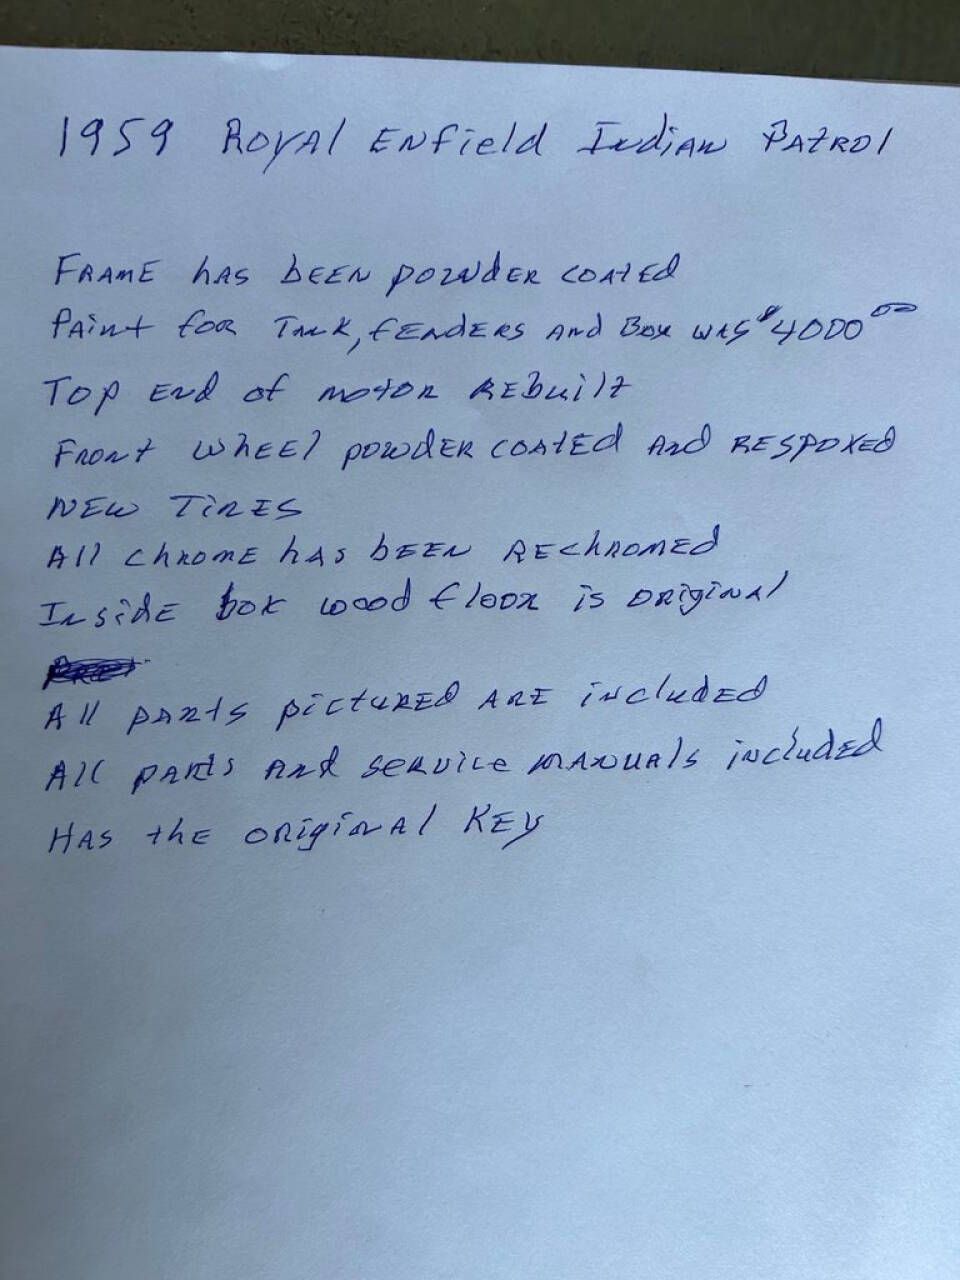 1959 Royal Enfield Indian Patrol
Frame has been powder coated
Paint for Tank, fenders and Box was $4000.00
Top End of motor Rebuilt
Front wheel powder coated and Respoked
New Tires
All chrome has been Rechromed
Inside box wood floor is original
All parts pictured are included
All parts and service manuals included
Has the original Key